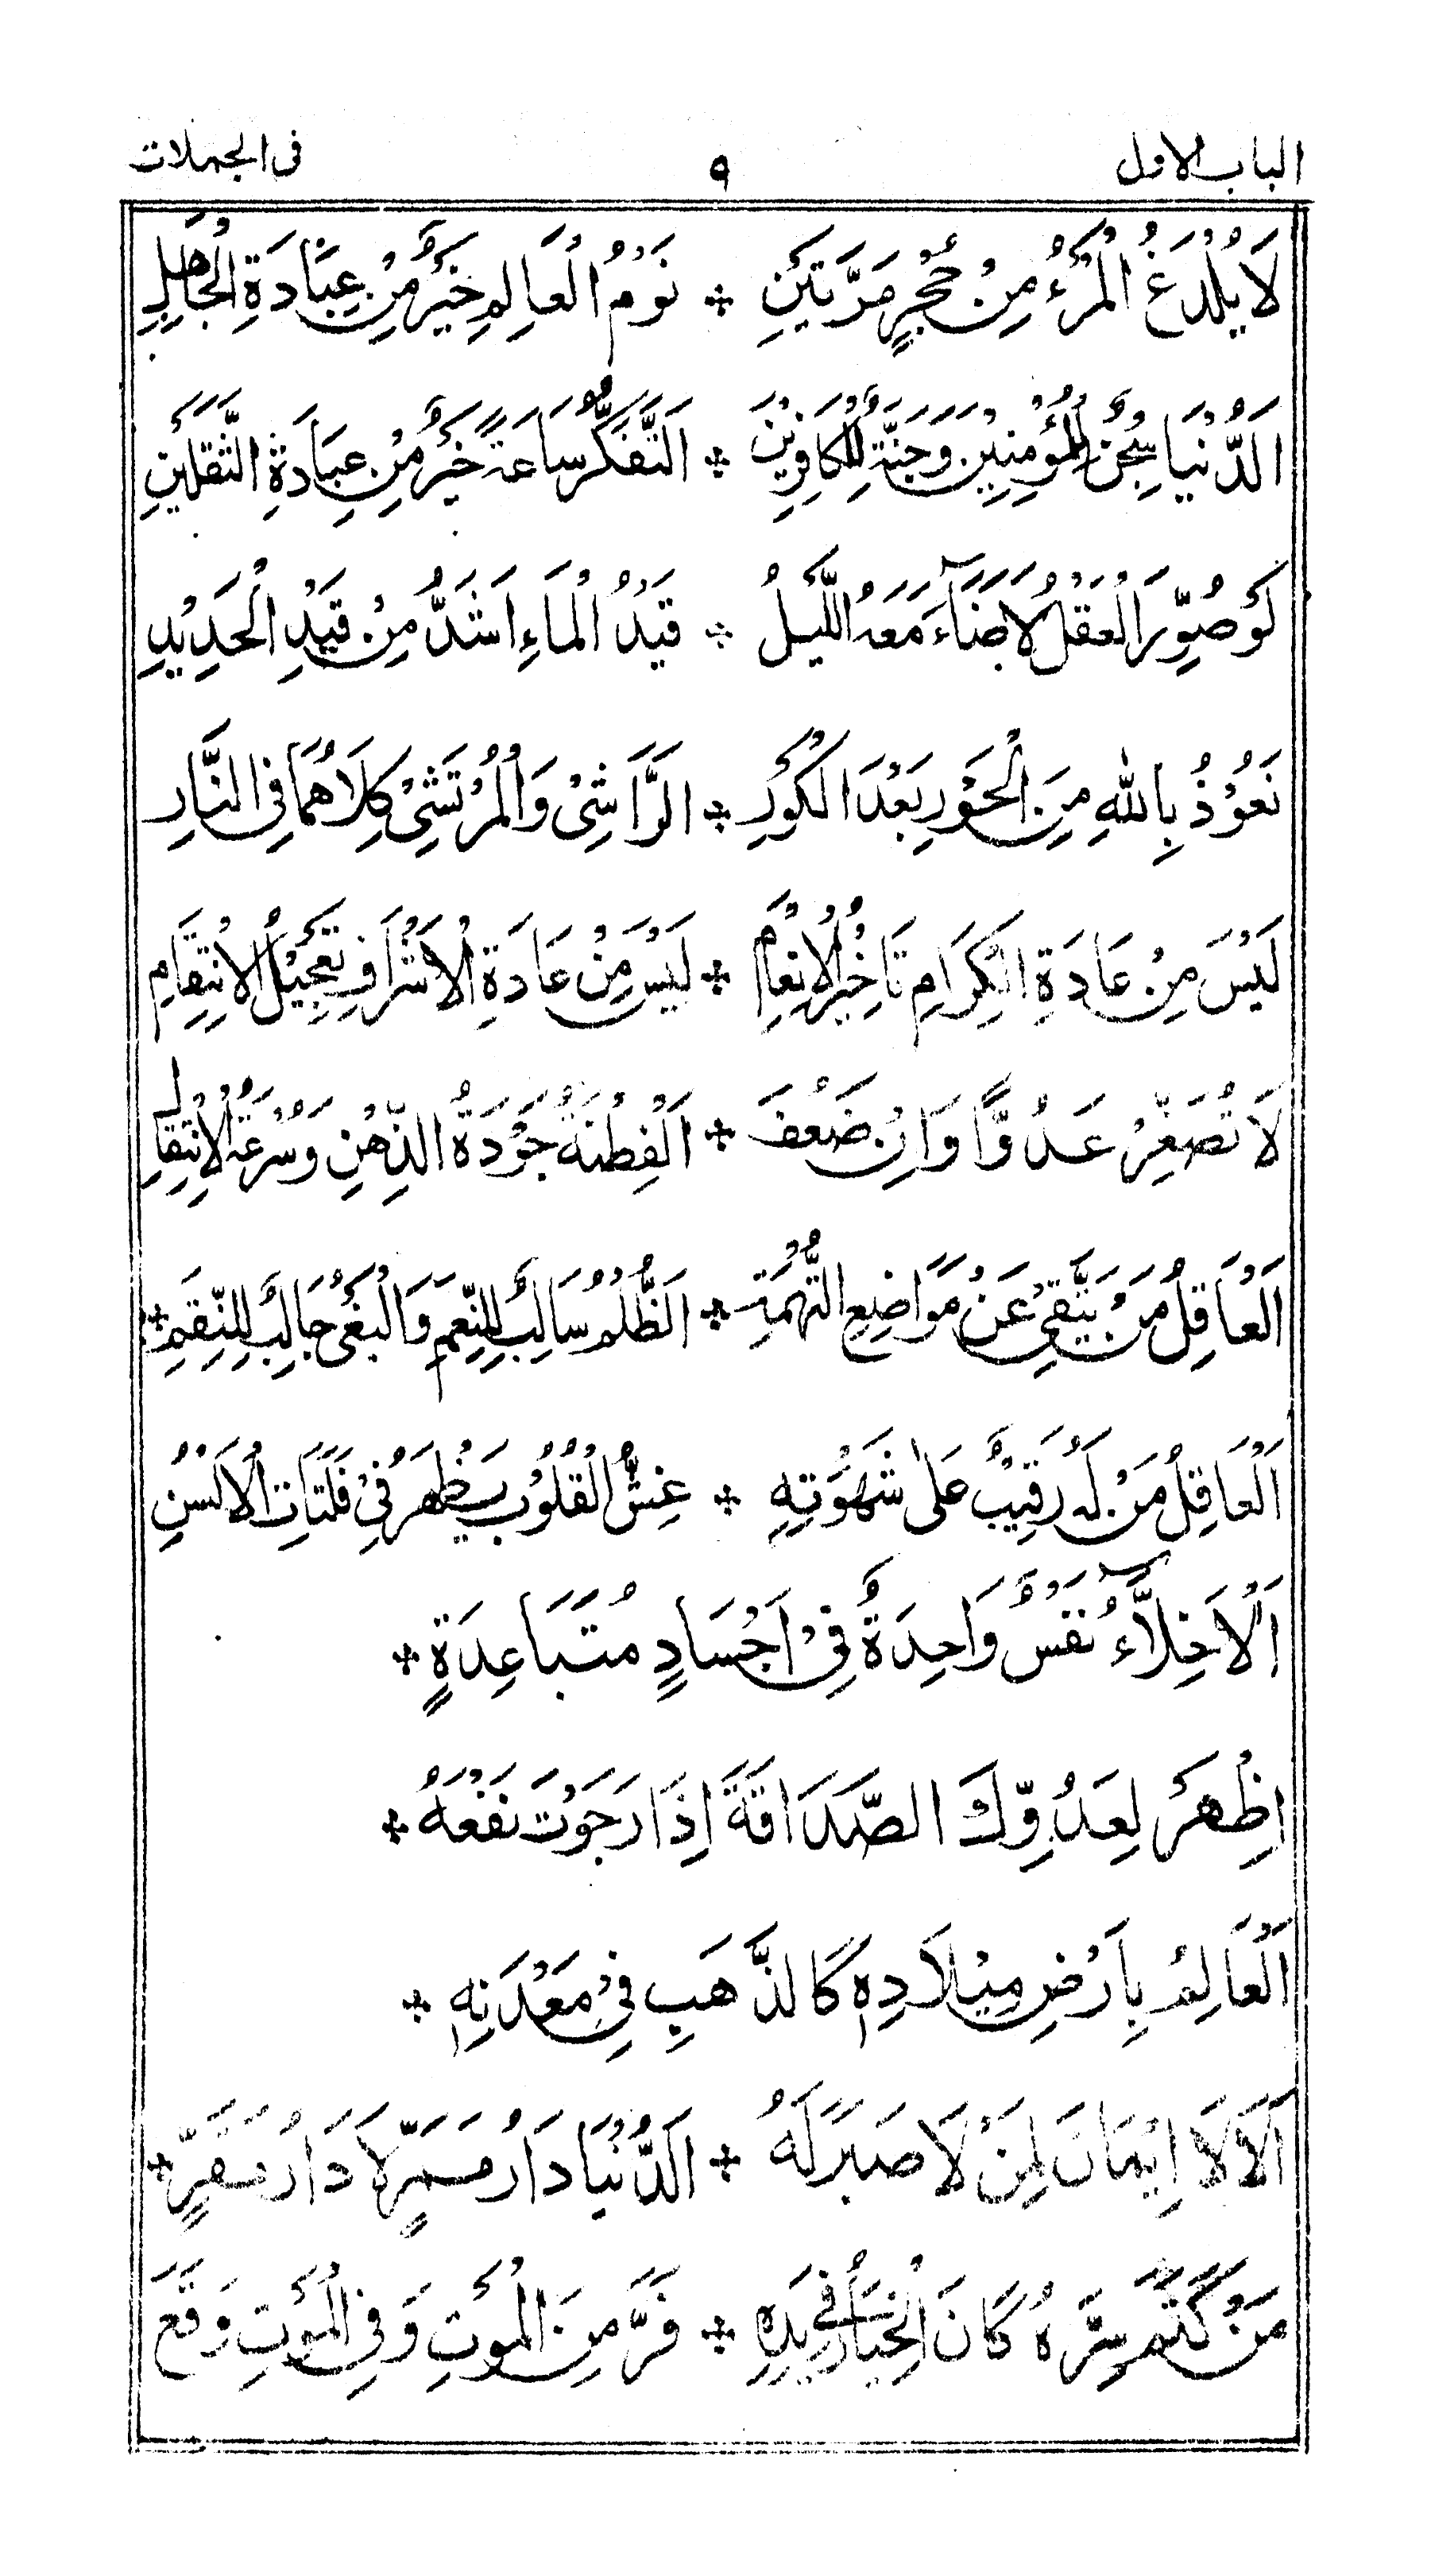 الباب الاول ۹ فی الجملات
لَا يُلْدَغُ الْمَرْءُ مِنْ جُحْرٍ مَرَّتَيْنِ ❊ نَوْمُ الْعَالِمِ خَيْرٌ مِنْ عِبَادَةِ الْجَاهِلِ
اَلدُّنْيَا سِجْنٌ لِلْمُؤْمِنِيْنَ وَجَنَّةٌ لِلْكَافِرِيْنَ ❊ اَلتَّفَكُّرُ سَاعَةً خَيْرٌ مِنْ عِبَادَةِ الثَّقَلَيْنِ
لَوْ صُوِّرَ الْعَقْلُ لَاَضَآءَ مَعَهُ اللَّيْلُ ❊ قَيْدُ الْمَاءِ اَشَدُّ مِنْ قَيْدِ الْحَدِيْدِ
نَعُوْذُ بِاللهِ مِنَ الْحَوْرِ بَعْدَ الْكَوْرِ ❊ الرَّاشِیْ وَالْمُرْتَشِیْ كِلَاهُمَا فِی النَّارِ
لَيْسَ مِنْ عَادَةِ الْكِرَامِ تَاخِيْرُ الْاِنْعَامِ ❊ لَيْسَ مِنْ عَادَةِ الْاَشْرَافِ تَعْجِيْلُ الْاِنْتِقَامِ
لَا تُصَغِّرْ عَدُوًّا وَاِنْ ضَعُفَ ❊ اَلْفِطْنَةُ جَوْدَةُ الذِّهْنِ وَسُرْعَةُ الْاِنْتِقَالِ
اَلْعَاقِلُ مَنْ يَتَّقِیْ عَنْ مَوَاضِعِ التُّهْمَةِ ❊ اَلظُّلْمُ سَالِبٌ لِلنِّعَمِ وَالْبَغْیُ جَالِبٌ لِلنِّقَمِ ❊
اَلْعَاقِلُ مَنْ لَهٗ رَقِيْبٌ عَلٰی شَهْوَتِهٖ ❊ غِشُّ الْقُلُوْبِ يَظْهَرُ فِیْ فَلَتَاتِ الْاَلْسُنِ
اَلْاَخِلَّآءُ نَفْسٌ وَاحِدَةٌ فِیْ اَجْسَادٍ مُتَبَاعِدَةٍ ❊
اِظْهَرْ لِعَدُوِّكَ الصَّدَاقَةَ اِذَا رَجَوْتَ نَفْعَهٗ ❊
اَلْعَالِمُ بِاَرْضِ مِيْلَادِهٖ كَالذَّهَبِ فِیْ مَعْدَنِهٖ ❊
اَلَا لَا اِيْمَانَ لِمَنْ لَا صَبْرَ لَهٗ ❊ اَلدُّنْيَا دَارُ مَمَرٍّ لَا دَارُ مَقَرٍّ ❊
مَنْ كَتَمَ سِرَّهٗ كَانَ الْخِيَارُ فِیْ يَدِهٖ ❊ فَرَّ مِنَ الْمَوْتِ وَفِی الْمَوْتِ وَقَعَ